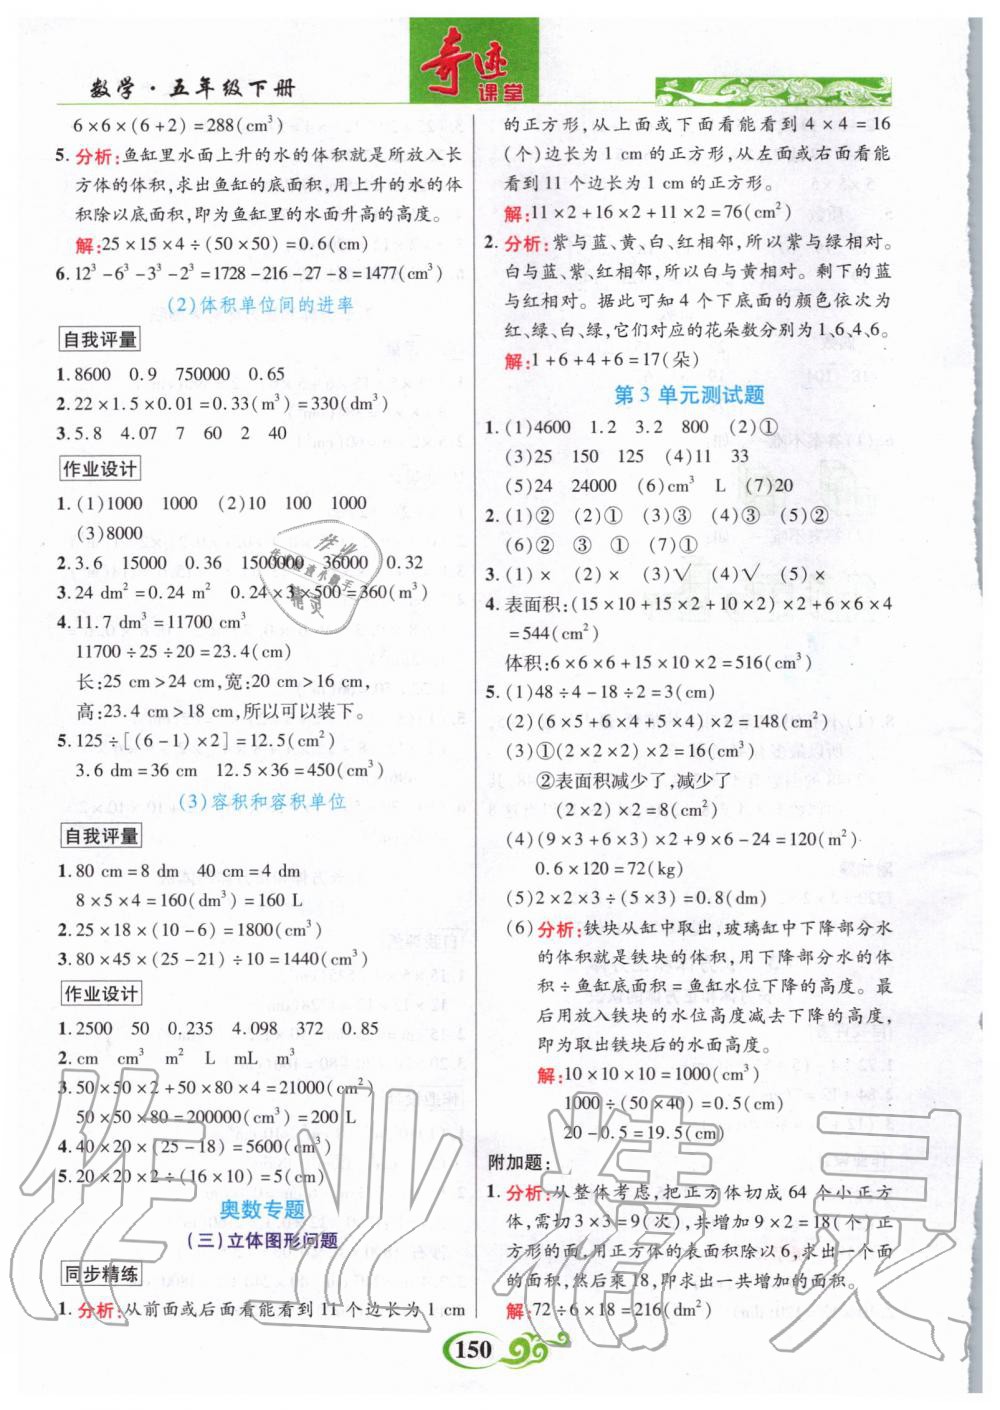 数学·五年级下册
奇迹
课堂
6×6×(6+2)=288(cm³)
5.分析:鱼缸里水面上升的水的体积就是所放入长
方体的体积,求出鱼缸的底面积,用上升的水的体
积除以底面积,即为鱼缸里的水面升高的高度。
解:25×15×4÷(50×50)=0.6(cm)
6.12³-6³-3³-2³=1728-216-27-8=1477(cm³)
(2)体积单位间的进率
自我评量
1.8600 0.9 750000 0.65
2.22×1.5×0.01=0.33(m³)=330(dm³)
3.5.8 4.07 7 60 2 40
作业设计
1.(1)1000 1000 (2)10 100 1000
(3)8000
2.3.6 15000 0.36 1500000 36000 0.32
3.24 dm²=0.24 m² 0.24×3×500=360(m³)
4.11.7 dm³=11700 cm³
11700÷25÷20=23.4(cm)
长:25 cm>24 cm,宽:20 cm>16 cm,
高:23.4 cm>18 cm,所以可以装下。
5.125÷[(6-1)×2]=12.5(cm²)
3.6 dm=36 cm 12.5×36=450(cm³)
(3)容积和容积单位
自我评量
1.80 cm=8 dm 40 cm=4 dm
8×5×4=160(dm³)=160 L
2.25×18×(10-6)=1800(cm³)
3.80×45×(25-21)÷10=1440(cm³)
作业设计
1.2500 50 0.235 4.098 372 0.85
2.cm cm³ m² L mL m³
3.50×50×2+50×80×4=21000(cm²)
50×50×80=200000(cm³)=200 L
4.40×20×(25-18)=5600(cm³)
5.20×20×2÷(16×10)=5(cm)
奥数专题
(三)立体图形问题
同步精练
1.分析:从前面或后面看能看到 11 个边长为 1 cm
的正方形,从上面或下面看能看到 4×4=16
(个)边长为 1 cm 的正方形,从左面或右面看能
看到 11 个边长为 1 cm 的正方形。
解:11×2+16×2+11×2=76(cm²)
2.分析:紫与蓝、黄、白、红相邻,所以紫与绿相对。
白与蓝、紫、红相邻,所以白与黄相对。剩下的蓝
与红相对。据此可知 4 个下底面的颜色依次为
红、绿、白、绿,它们对应的花朵数分别为 1、6、4、6。
解:1+6+4+6=17(朵)
第 3 单元测试题
1.(1)4600 1.2 3.2 800 (2)①
(3)25 150 125 (4)11 33
(5)24 24000 (6)cm³ L (7)20
2.(1)② (2)① (3)③ (4)③ (5)②
(6)② ③ ① (7)①
3.(1)× (2)× (3)√ (4)√ (5)×
4.表面积:(15×10+15×2+10×2)×2+6×6×4
=544(cm²)
体积:6×6×6+15×10×2=516(cm³)
5.(1)48÷4-18÷2=3(cm)
(2)(6×5+6×4+5×4)×2=148(cm²)
(3)①(2×2×2)×2=16(cm³)
②表面积减少了,减少了
(2×2)×2=8(cm²)
(4)(9×3+6×3)×2+9×6-24=120(m²)
0.6×120=72(kg)
(5)2×2×3÷(5×3)=0.8(dm)
(6)分析:铁块从缸中取出,玻璃缸中下降部分水
的体积就是铁块的体积,用下降部分水的体
积÷鱼缸底面积=鱼缸水位下降的高度。最
后用放入铁块的水位高度减去下降的高度,
即为取出铁块后的水面高度。
解:10×10×10=1000(cm³)
1000÷(50×40)=0.5(cm)
20-0.5=19.5(cm)
附加题:
1.分析:从整体考虑,把正方体切成 64 个小正方
体,需切 3×3=9(次),共增加 9×2=18(个)正
方形的面,用正方体的表面积除以 6,求出一个面
的面积,然后乘 18,即求出一共增加的面积。
解:72÷6×18=216(dm²)
150
作业精灵